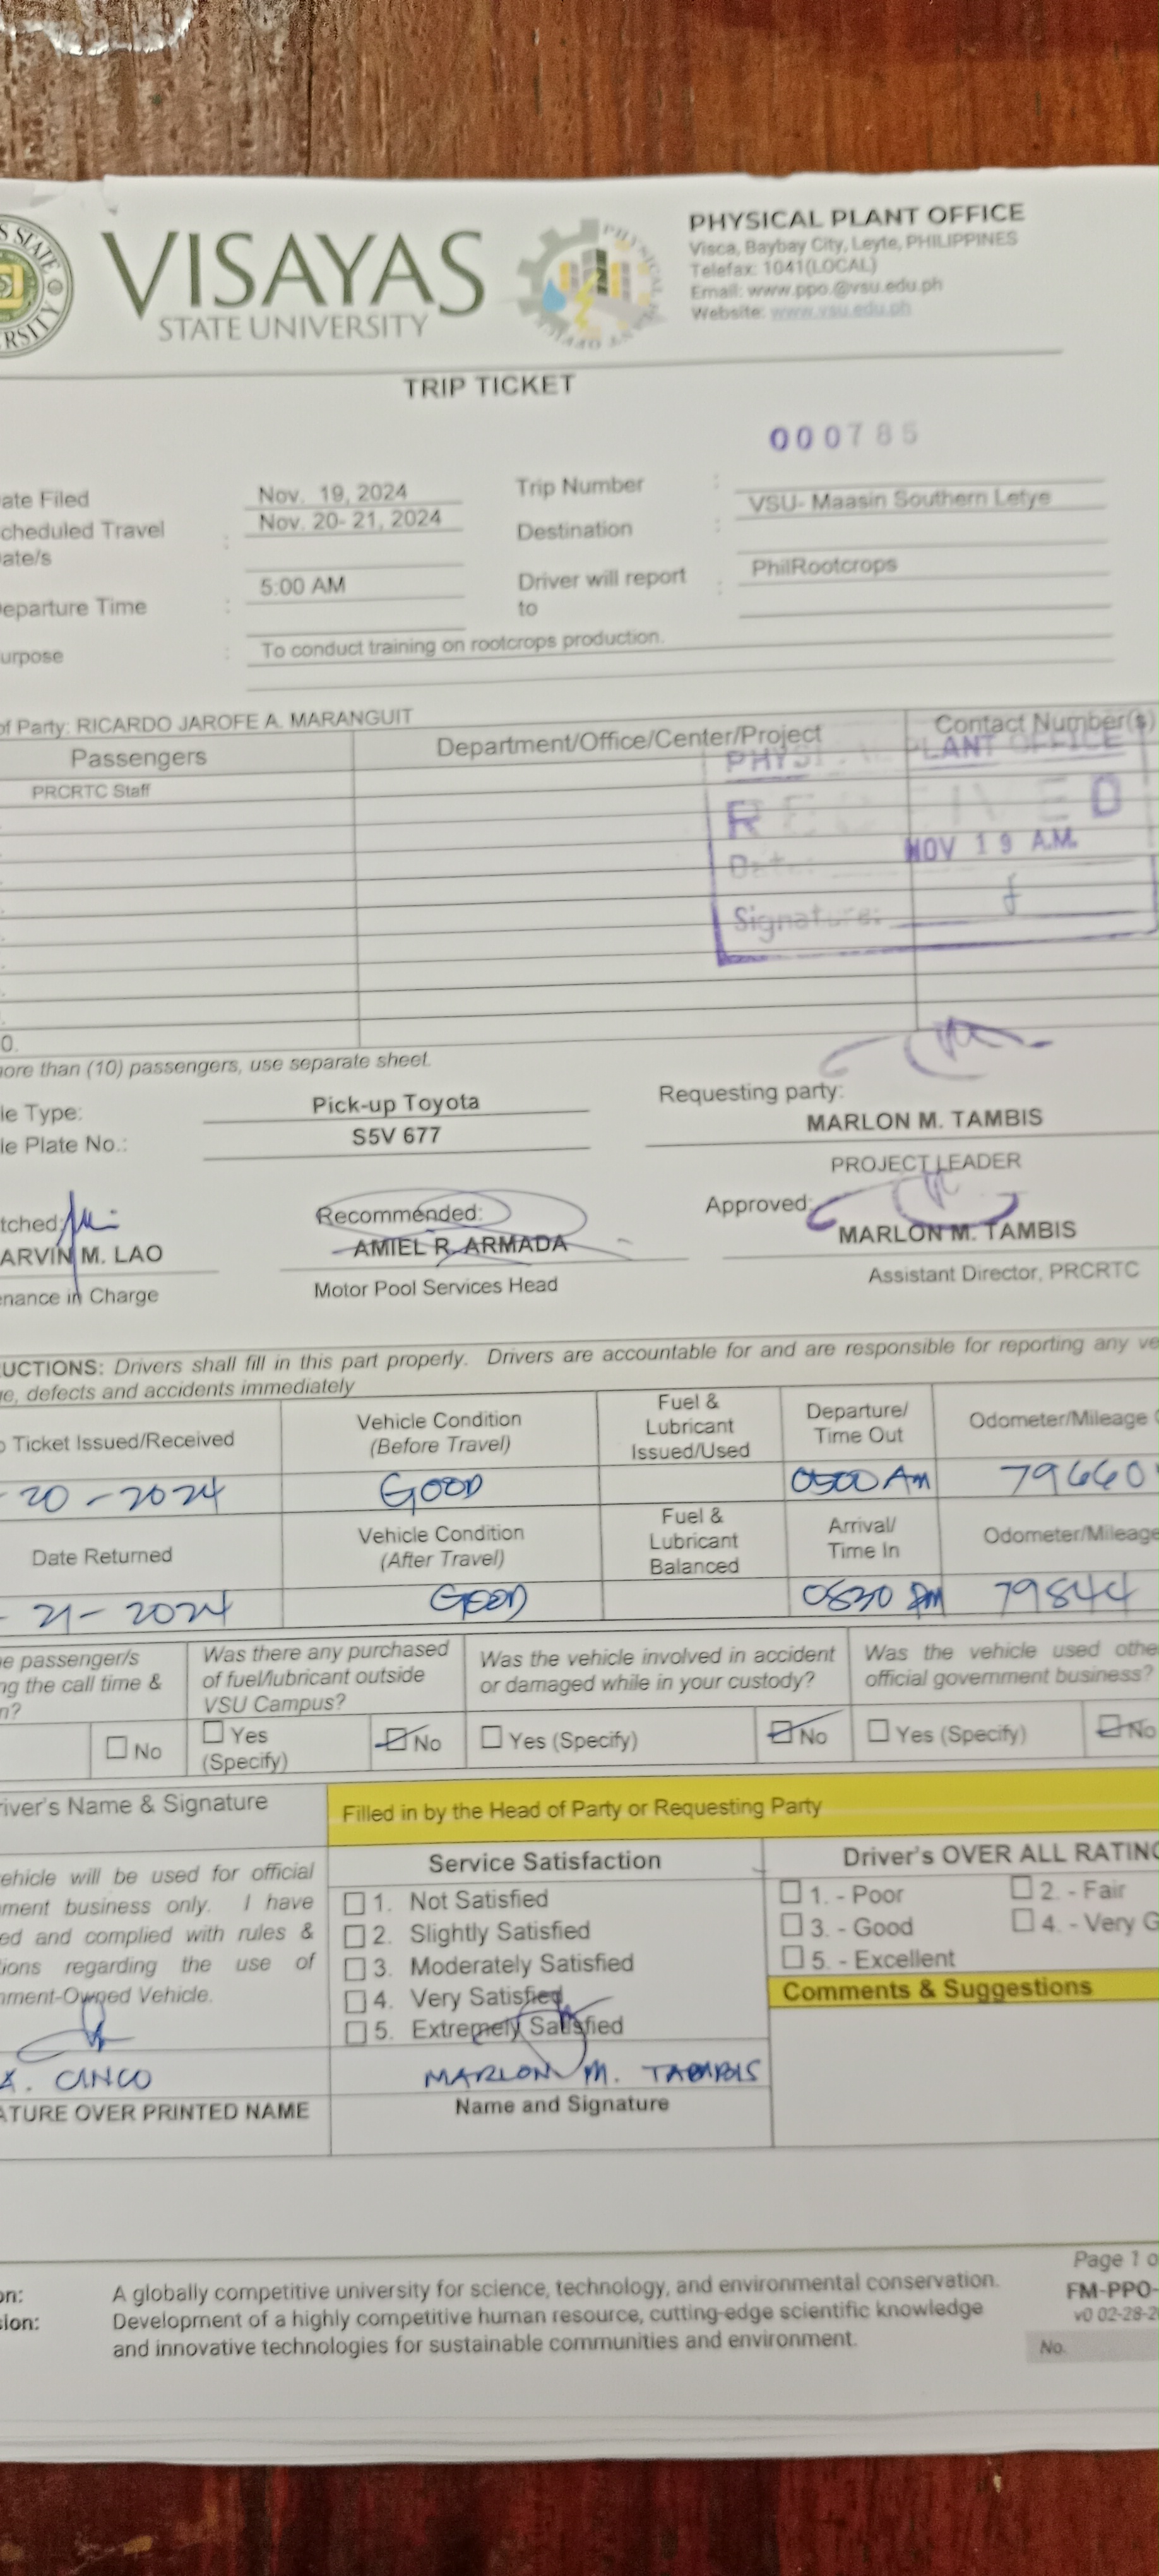 VISAYAS
STATE UNIVERSITY
PHYSICAL PLANT OFFICE
Visca, Baybay City, Leyte, PHILIPPINES
Telefax: 1041(LOCAL)
Email: www.ppo.@vsu.edu.ph
Website: www.vsu.edu.ph
TRIP TICKET
000785
ate Filed Nov. 19, 2024 Trip Number :
cheduled Travel : Nov. 20-21, 2024 Destination : VSU- Maasin Southern Letye
ate/s
eparture Time : 5:00 AM Driver will report : PhilRootcrops
to
urpose : To conduct training on rootcrops production.
of Party: RICARDO JAROFE A. MARANGUIT
Passengers Department/Office/Center/Project Contact Number(s)
PRCRTC Staff
PHYSICAL PLANT OFFICE
RECEIVED
Date: NOV 19 A.M.
Signature:
0.
ore than (10) passengers, use separate sheet.
le Type: Pick-up Toyota Requesting party:
le Plate No.: S5V 677 MARLON M. TAMBIS
PROJECT LEADER
tched: Recommended: Approved:
ARVIN M. LAO AMIEL R. ARMADA MARLON M. TAMBIS
enance in Charge Motor Pool Services Head Assistant Director, PRCRTC
UCTIONS: Drivers shall fill in this part properly. Drivers are accountable for and are responsible for reporting any ve
e, defects and accidents immediately
Ticket Issued/Received Vehicle Condition (Before Travel) Fuel & Lubricant Issued/Used Departure/ Time Out Odometer/Mileage
- 20 - 2024 GOOD 0500 Am 79660
Date Returned Vehicle Condition (After Travel) Fuel & Lubricant Balanced Arrival/ Time In Odometer/Mileage
- 21 - 2024 GOOD 0830 PM 79844
e passenger/s Was there any purchased Was the vehicle involved in accident Was the vehicle used othe
ng the call time & of fuel/lubricant outside or damaged while in your custody? official government business?
n? VSU Campus?
No Yes (Specify) No Yes (Specify) No Yes (Specify) No
river's Name & Signature Filled in by the Head of Party or Requesting Party
Service Satisfaction Driver's OVER ALL RATING
ehicle will be used for official 1. Not Satisfied 1. - Poor 2. - Fair
ment business only. I have 2. Slightly Satisfied 3. - Good 4. - Very G
ed and complied with rules & 3. Moderately Satisfied 5. - Excellent
ions regarding the use of 4. Very Satisfied Comments & Suggestions
nment-Owned Vehicle. 5. Extremely Satisfied
A. CINCO MARLON M. TAMBIS
ATURE OVER PRINTED NAME Name and Signature
Page 1 o
on: A globally competitive university for science, technology, and environmental conservation. FM-PPO-
sion: Development of a highly competitive human resource, cutting-edge scientific knowledge v0 02-28-2
and innovative technologies for sustainable communities and environment. No.